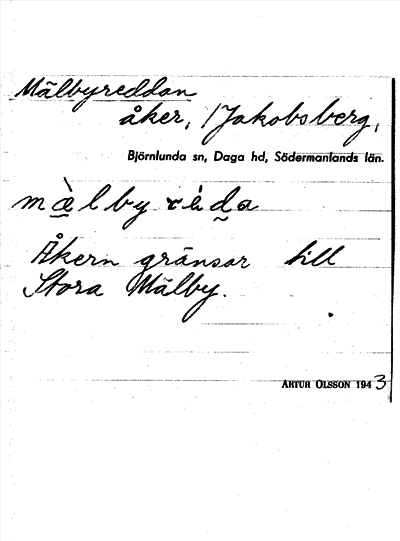 Mälbyreddan
åker, /Jakobsberg,
Björnlunda sn, Daga hd, Södermanlands län.
mæ̀lbyrèda
Åkern gränsar till
Stora Mälby.
ARTUR OLSSON 1943